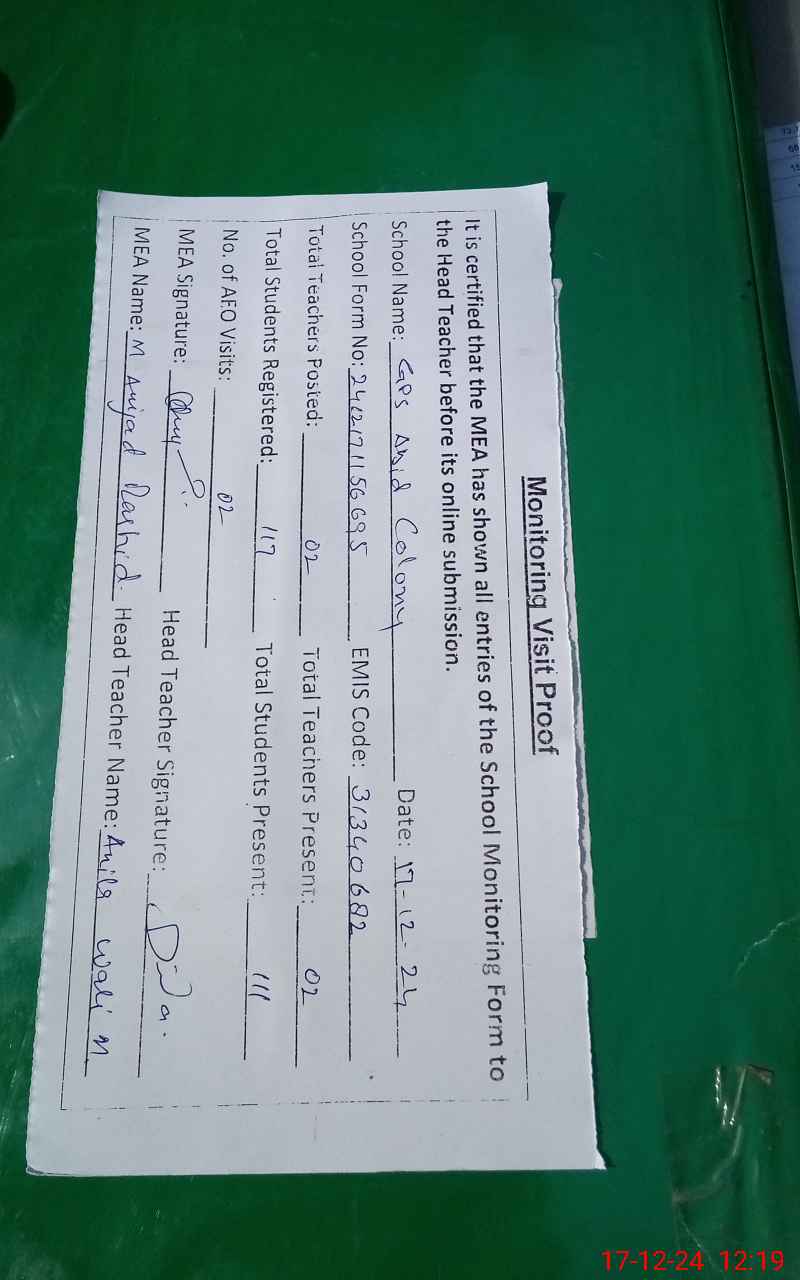 Monitoring Visit Proof
It is certified that the MEA has shown all entries of the School Monitoring Form to
the Head Teacher before its online submission.
School Name: GPS Colony Date: 17-12-24
School Form No: EMIS Code: 31340682
Total Teachers Posted: 02 Total Teachers Present: 02
Total Students Registered: 117 Total Students Present: 111
No. of AEO Visits: 02
MEA Signature: Head Teacher Signature:
MEA Name: M Amjad Rashid. Head Teacher Name: Anila Wali
17-12-24 12:19